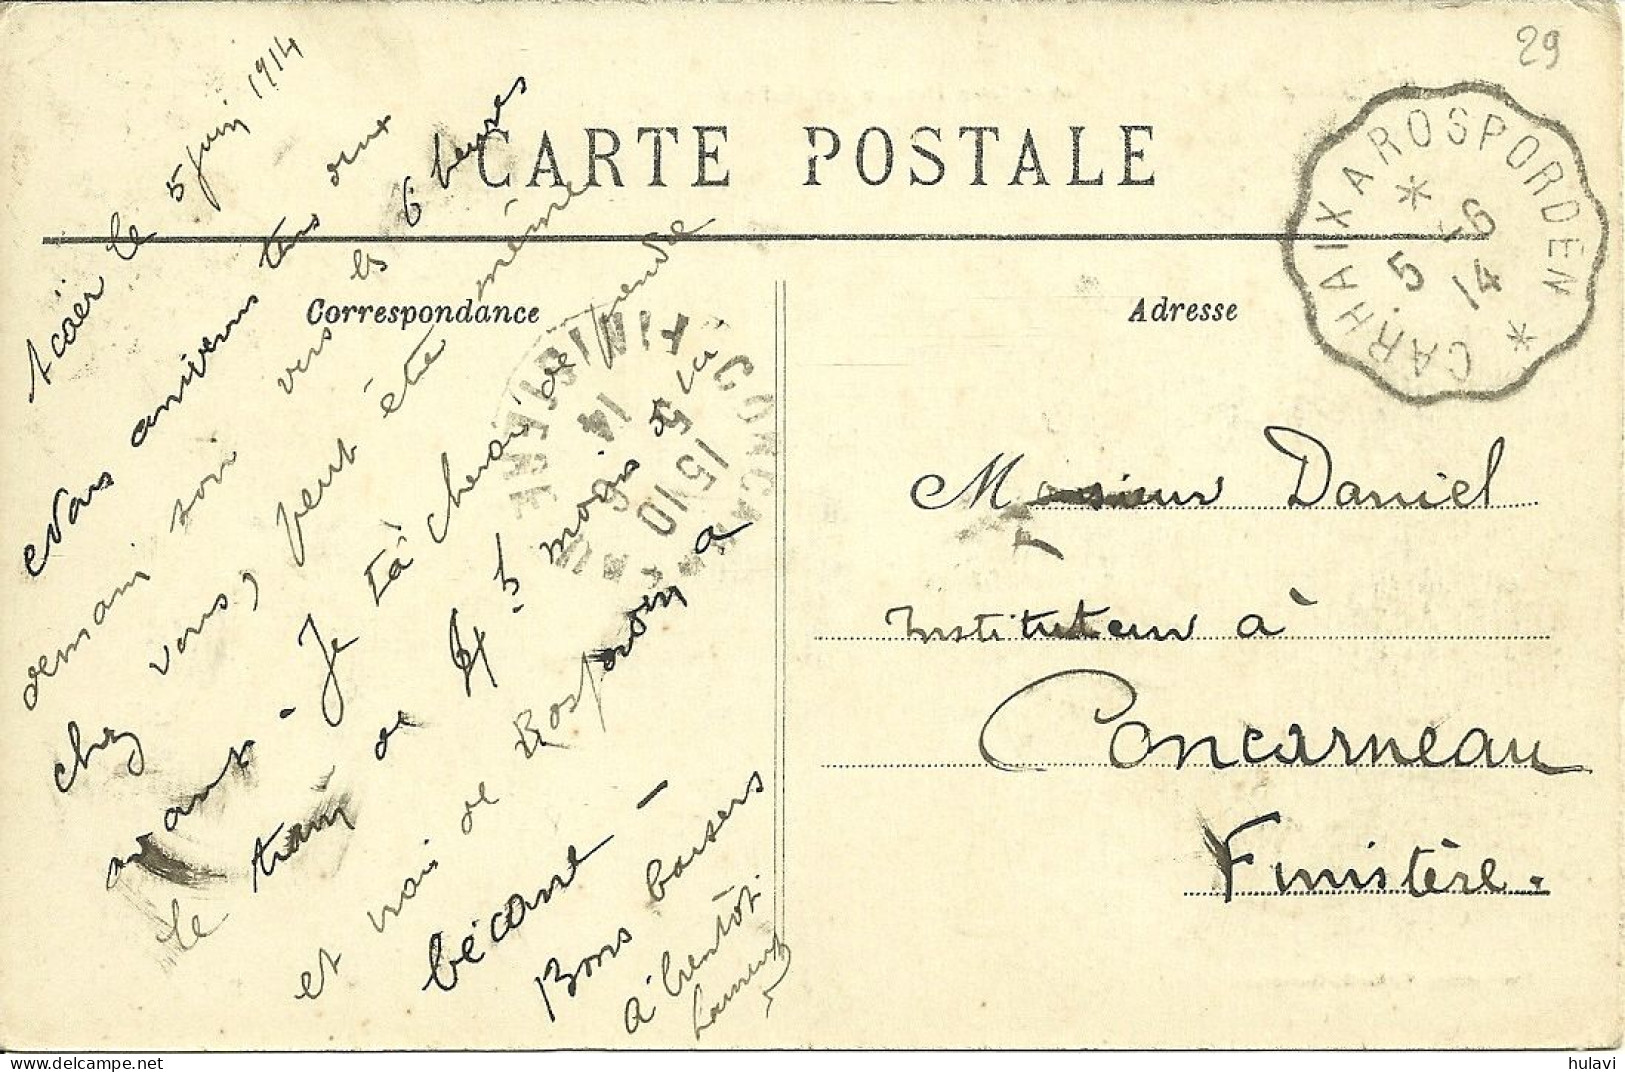 29
CARTE POSTALE
CARHAIX A ROSPORDEN
5 -6
14
Correspondance
Adresse
CONCARNEAU FINISTERE
15 10
5
14
Scaër le 5 juin 1914
Nous arriverons tous deux
demain soir vers les 6 heures
chez vous, peut être même
avant. Je tâcherai de prendre
le train de 4h moins
et irai de Rosporden à
bécane -
Bons baisers
à bientôt.
Laurent
Monsieur Daniel
Instituteur à
Concarneau
Finistère.
hulavi